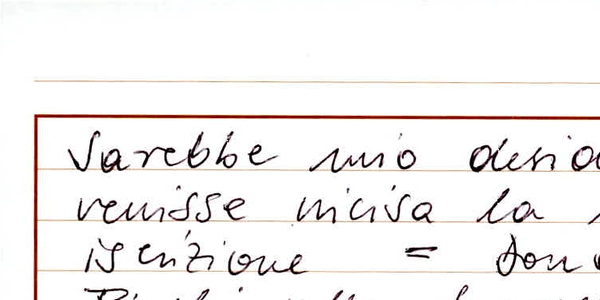 Sarebbe mio deside
venisse incisa la
iscrizione = Don